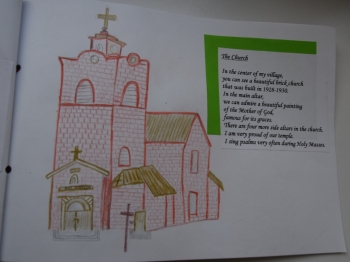 The Church
In the center of my village,
you can see a beautiful brick church
that was built in 1928-1930.
In the main altar,
we can admire a beautiful painting
of the Mother of God,
famous for its graces.
There are four more side altars in the church.
I am very proud of our temple.
I sing psalms very often during Holy Masses.